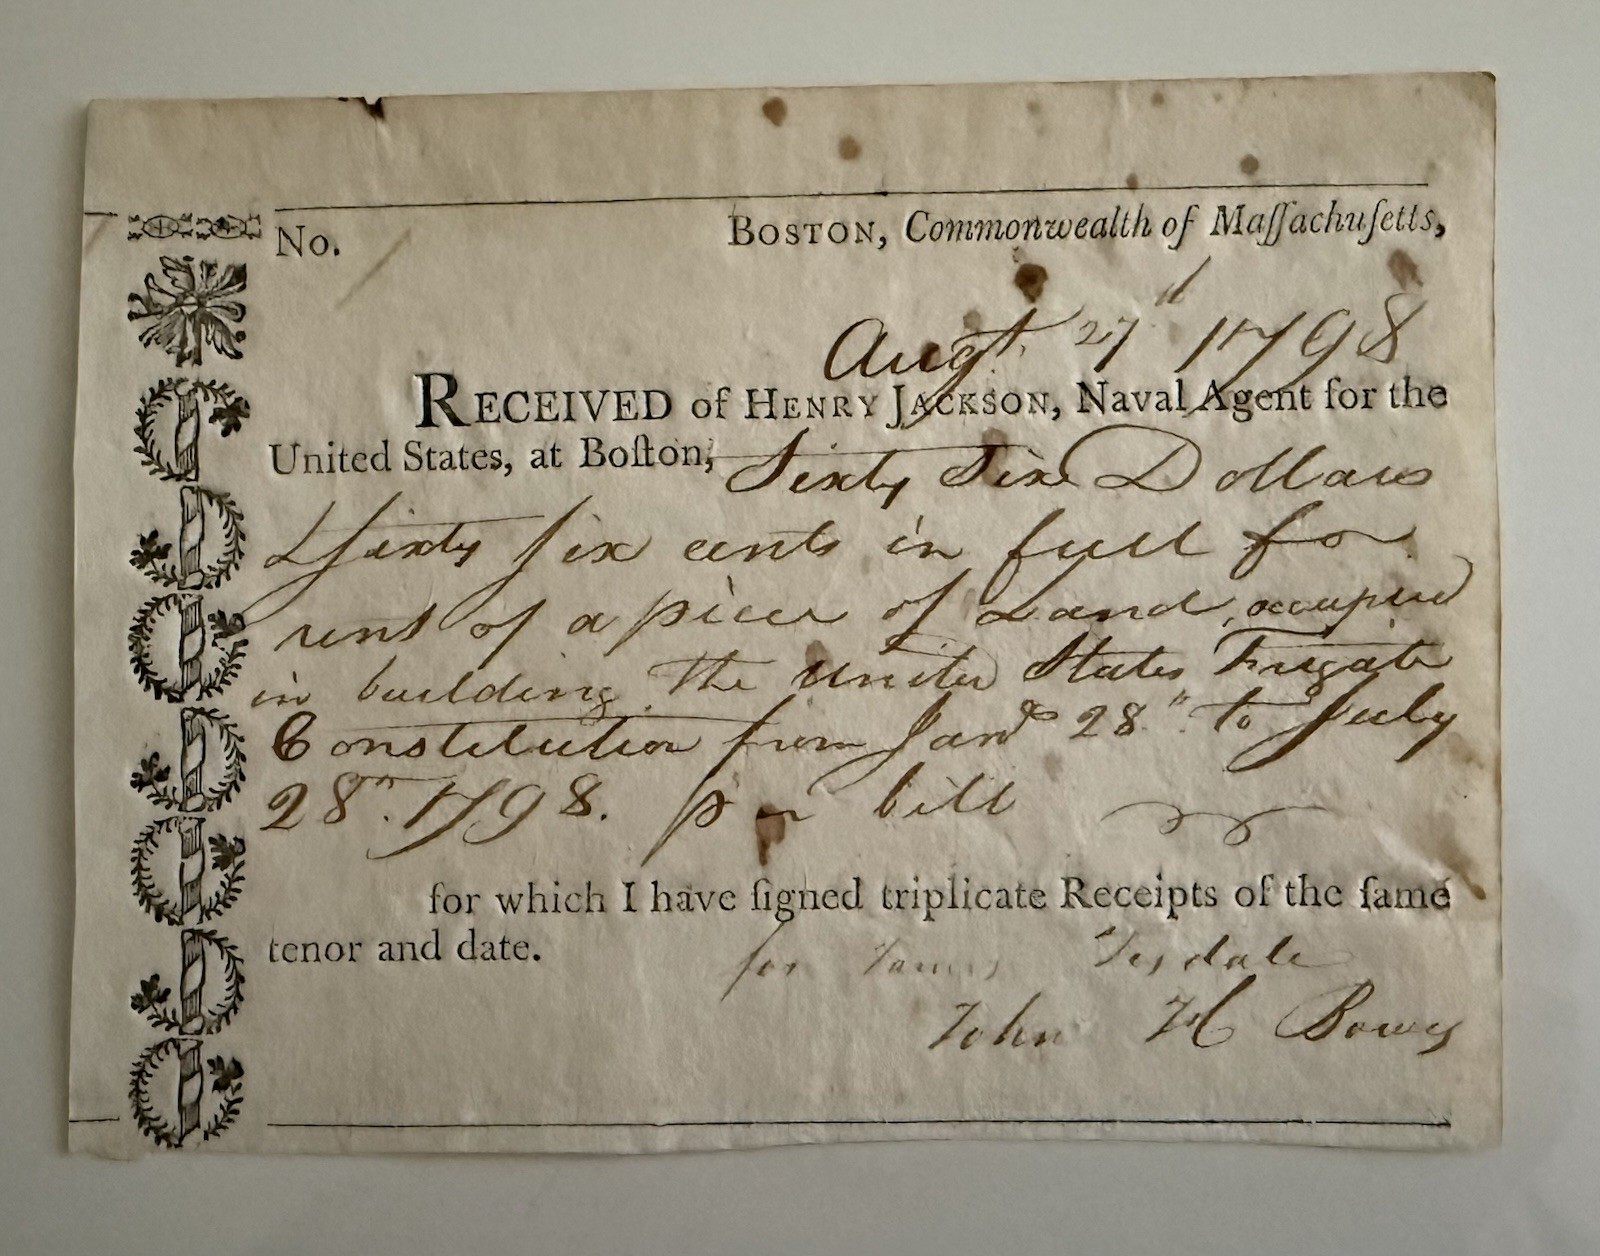 No.
BOSTON, Commonwealth of Maſſachuſetts,
Augt. 27th 1798
RECEIVED of HENRY JACKSON, Naval Agent for the
United States, at Boſton, Sixty Six Dollars
& ſixty ſix cents in full for
rent of a piece of Land, occupied
in building the United States Frigate
Constitution from Jany 28th to July
28th 1798. per bill
for which I have ſigned triplicate Receipts of the ſame
tenor and date.
for James Tisdale
John H Bowers